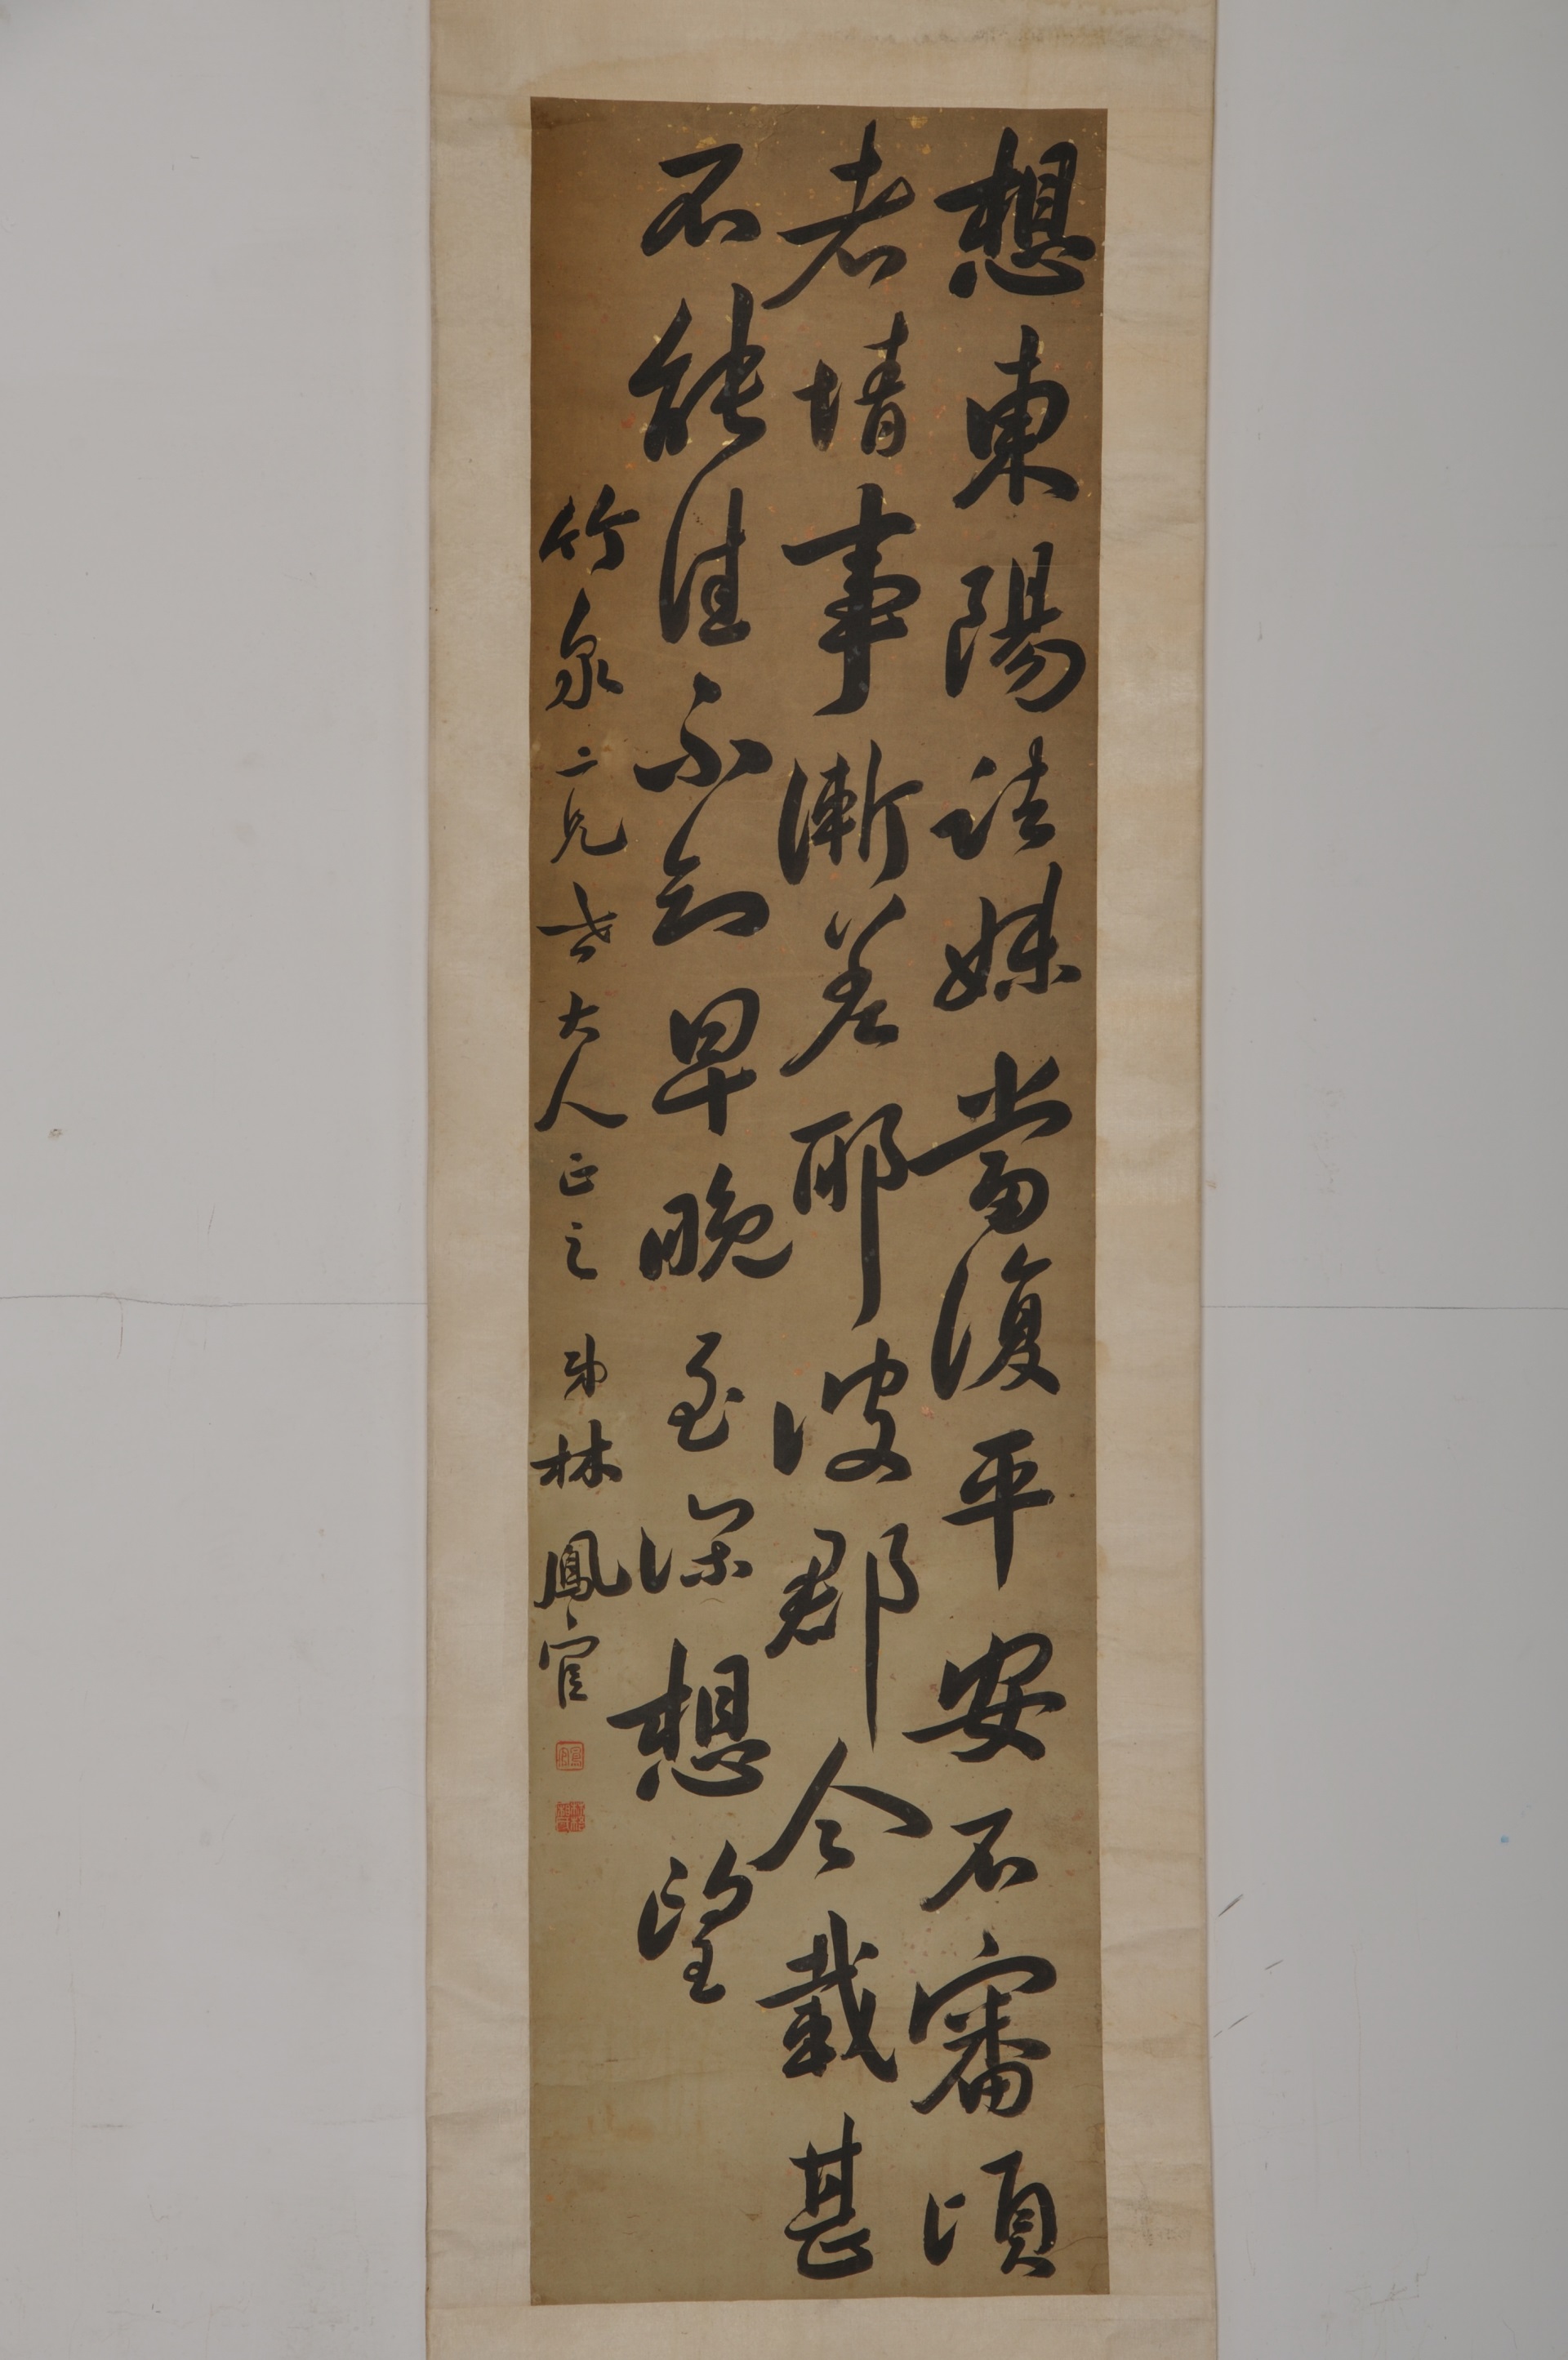 想東陽諸妹當復平安不審頃
者情事漸差耶彼郡今載甚
不能佳不知早晚至深想望
竹泉二兄世大人正之 弟林鳳官